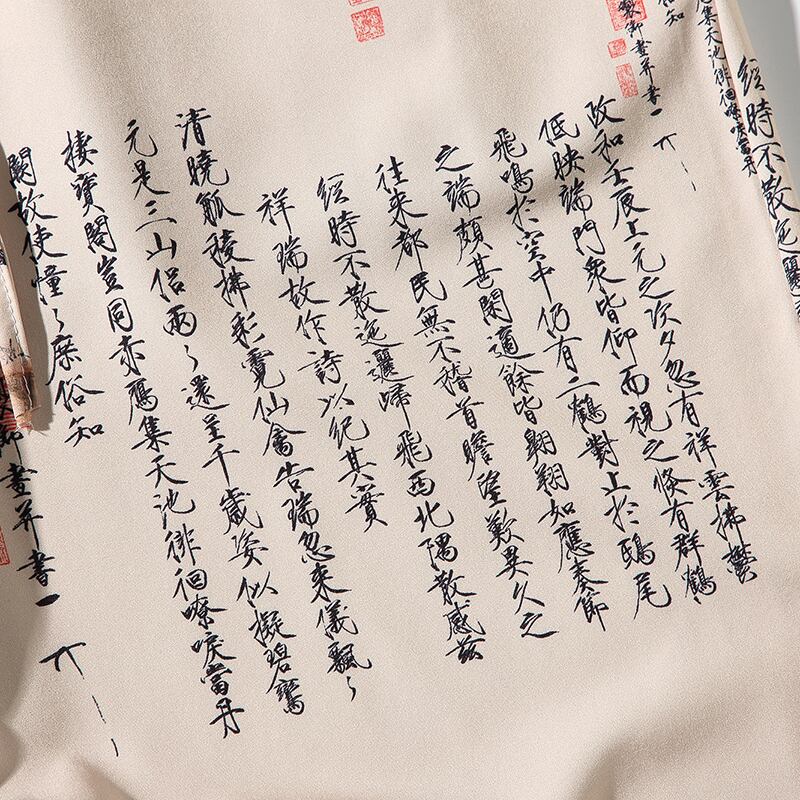 經時不散迤邐
集天池徘徊嘹唳當丹
俗知
製御畫并書
政和壬辰上元之次夕忽有祥雲拂鬱
低映端門衆皆仰而視之倏有群鶴
飛鳴於空中仍有二鶴對上於鴟尾
之端頗甚閑適餘皆翱翔如應奏節
往來都民無不稽首瞻望歎異久之
經時不散迤邐歸飛西北隅散感茲
祥瑞故作詩以紀其實
清曉觚稜拂彩霓仙禽告瑞忽來儀飄〻
元是三山侶兩〻還呈千歲姿似擬碧鸞
棲寶閣豈同赤鴈集天池徘徊嘹唳當丹
闕故使憧〻庶俗知
御畫并書